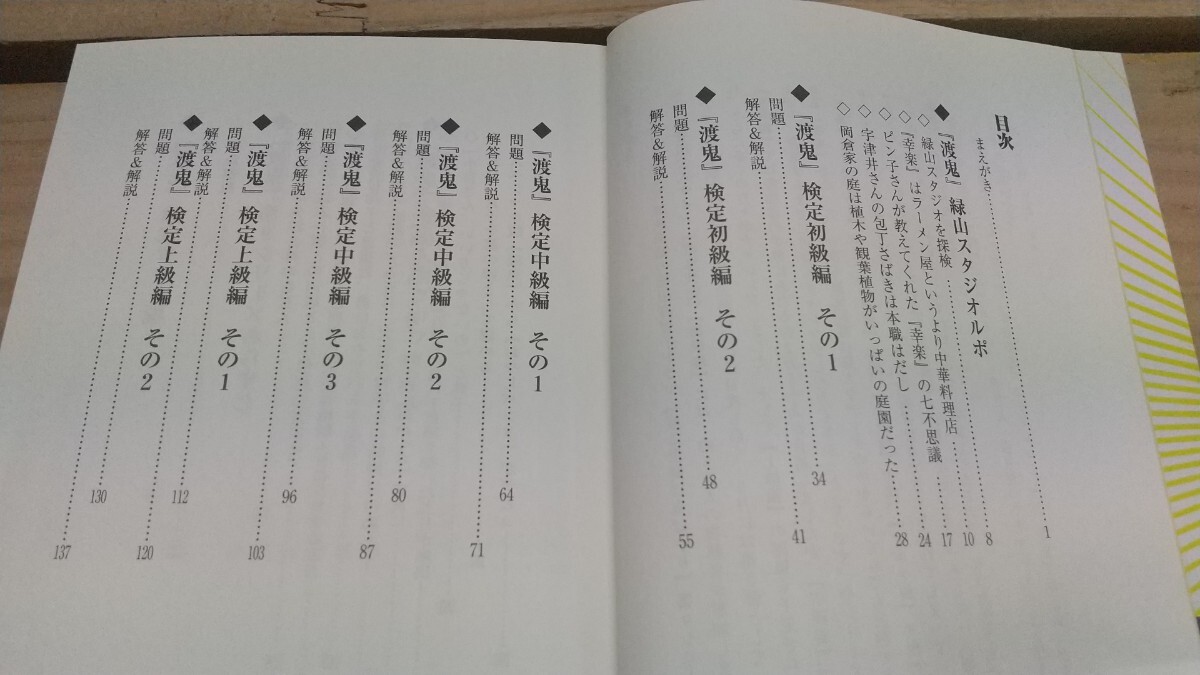 目次
まえがき……1
◆『渡鬼』緑山スタジオルポ
◇緑山スタジオを探検……8
◇『幸楽』はラーメン屋というより中華料理店……10
◇ピン子さんが教えてくれた『幸楽』の七不思議……17
◇宇津井さんの包丁さばきは本職はだし……24
◇岡倉家の庭は植木や観葉植物がいっぱいの庭園だった……28
◆『渡鬼』検定初級編 その1
問題……34
解答&解説……41
◆『渡鬼』検定初級編 その2
問題……48
解答&解説……55
◆『渡鬼』検定中級編 その1
問題……64
解答&解説……71
◆『渡鬼』検定中級編 その2
問題……80
解答&解説……87
◆『渡鬼』検定中級編 その3
問題……96
解答&解説……103
◆『渡鬼』検定上級編 その1
問題……112
解答&解説……120
◆『渡鬼』検定上級編 その2
問題……130
解答&解説……137